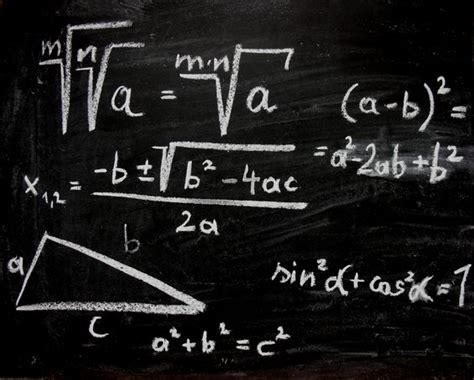 ᵐ√ⁿ√a = ᵐ·ⁿ√a
(a-b)² =
= a²-2ab+b²
x₁,₂ = -b ± √b² - 4ac / 2a
a
b
c
sin²α + cos²α = 1
a² + b² = c²